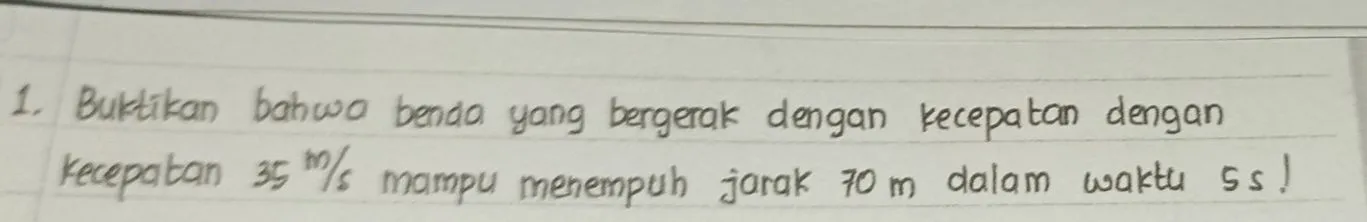 1. Buktikan bahwa benda yang bergerak dengan kecepatan dengan
kecepatan 35 m/s mampu menempuh jarak 70 m dalam waktu 5 s!